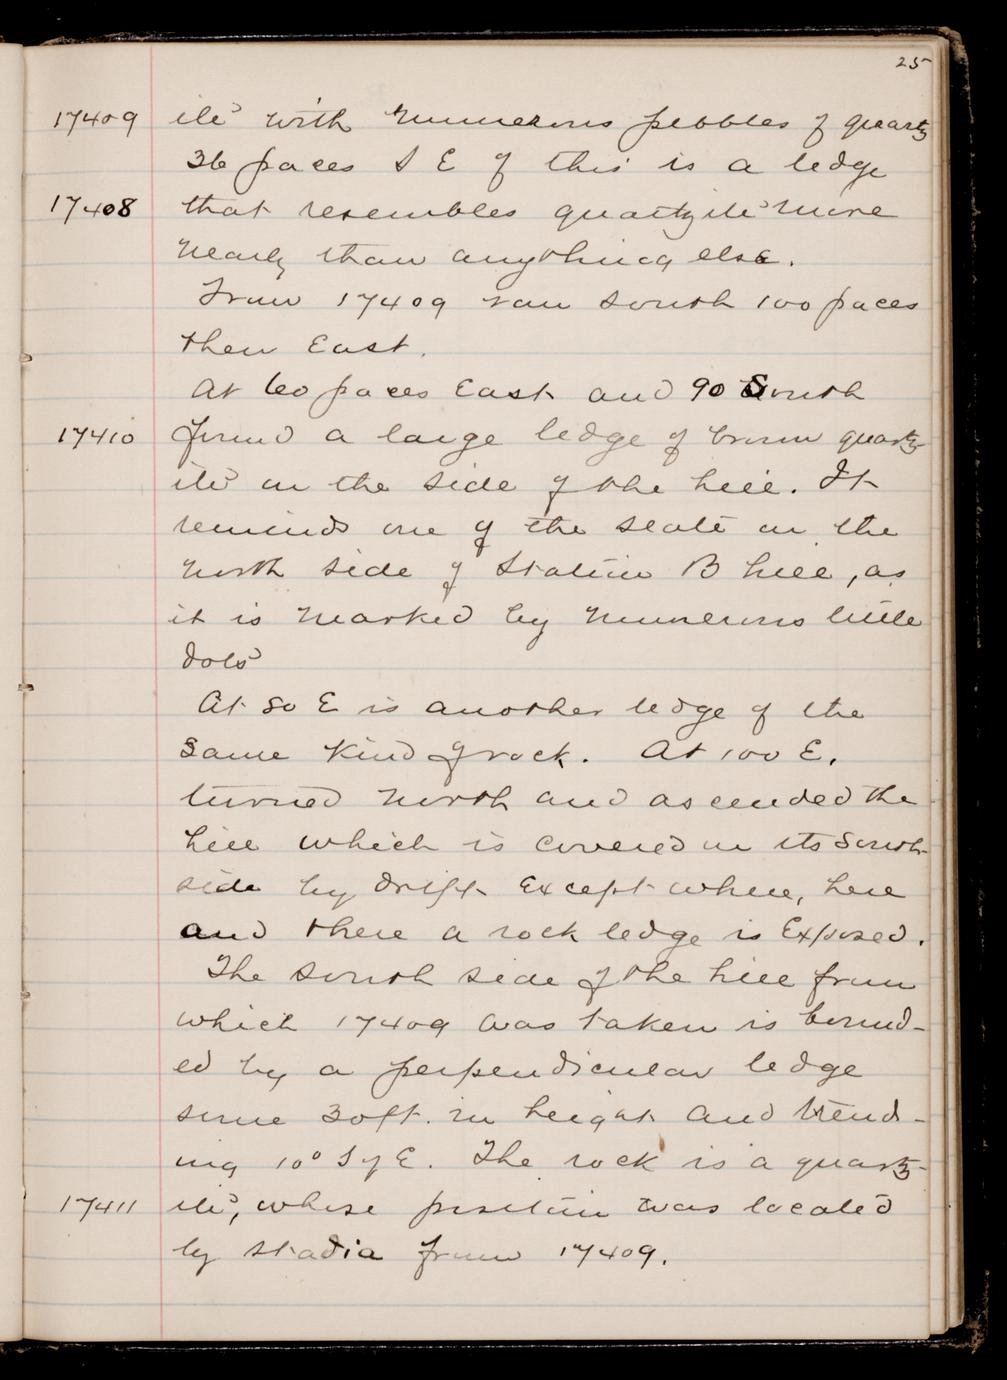 25
17409 ite with numerous pebbles of quartz
36 paces S E of this is a ledge
17408 that resembles quartzite more
nearly than anything else.
From 17409 ran South 100 paces
then East.
At 60 paces East and 90 South
17410 found a large ledge of brown quartz-
ite on the side of the hill. It
reminds one of the slate on the
north side of Station B hill, as
it is marked by numerous little
dots
At 80 E is another ledge of the
same kind of rock. At 100 E.
turned north and ascended the
hill which is covered on its South
side by drift except where, here
and there a rock ledge is exposed.
The south side of the hill from
which 17409 was taken is bound-
ed by a perpendicular ledge
some 30 ft. in height and trend-
ing 10° S of E. The rock is a quartz-
17411 ite, whose position was located
by stadia from 17409.